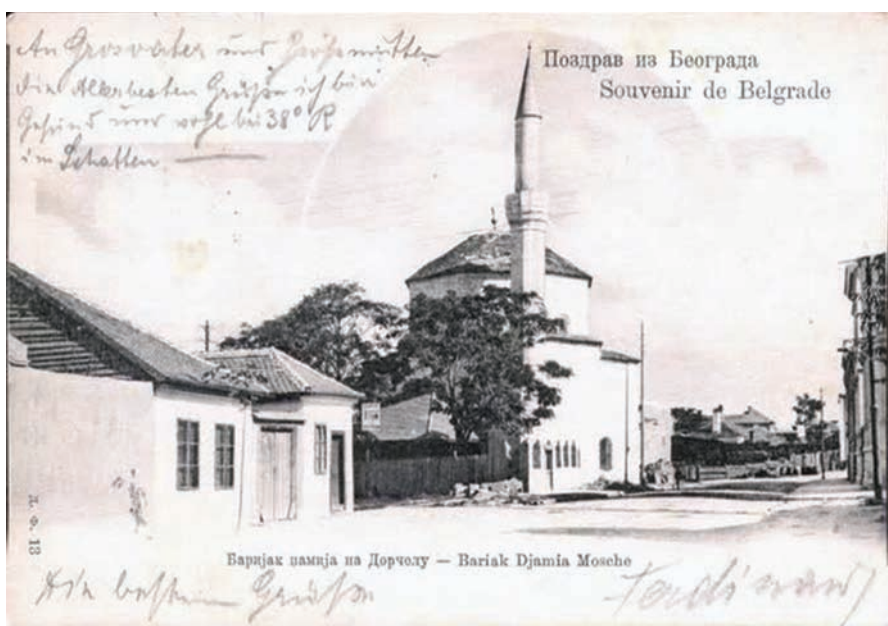 An Grosvater und Grosmutter
die Allerbesten Grüße ich bin
Gesund und wohl bei 38° R
im Schatten
Поздрав из Београда
Souvenir de Belgrade
Д. Ф. 13
Баријак џамија на Дорчолу — Bariak Djamia Mosche
Die besten Grüße
Ferdinand